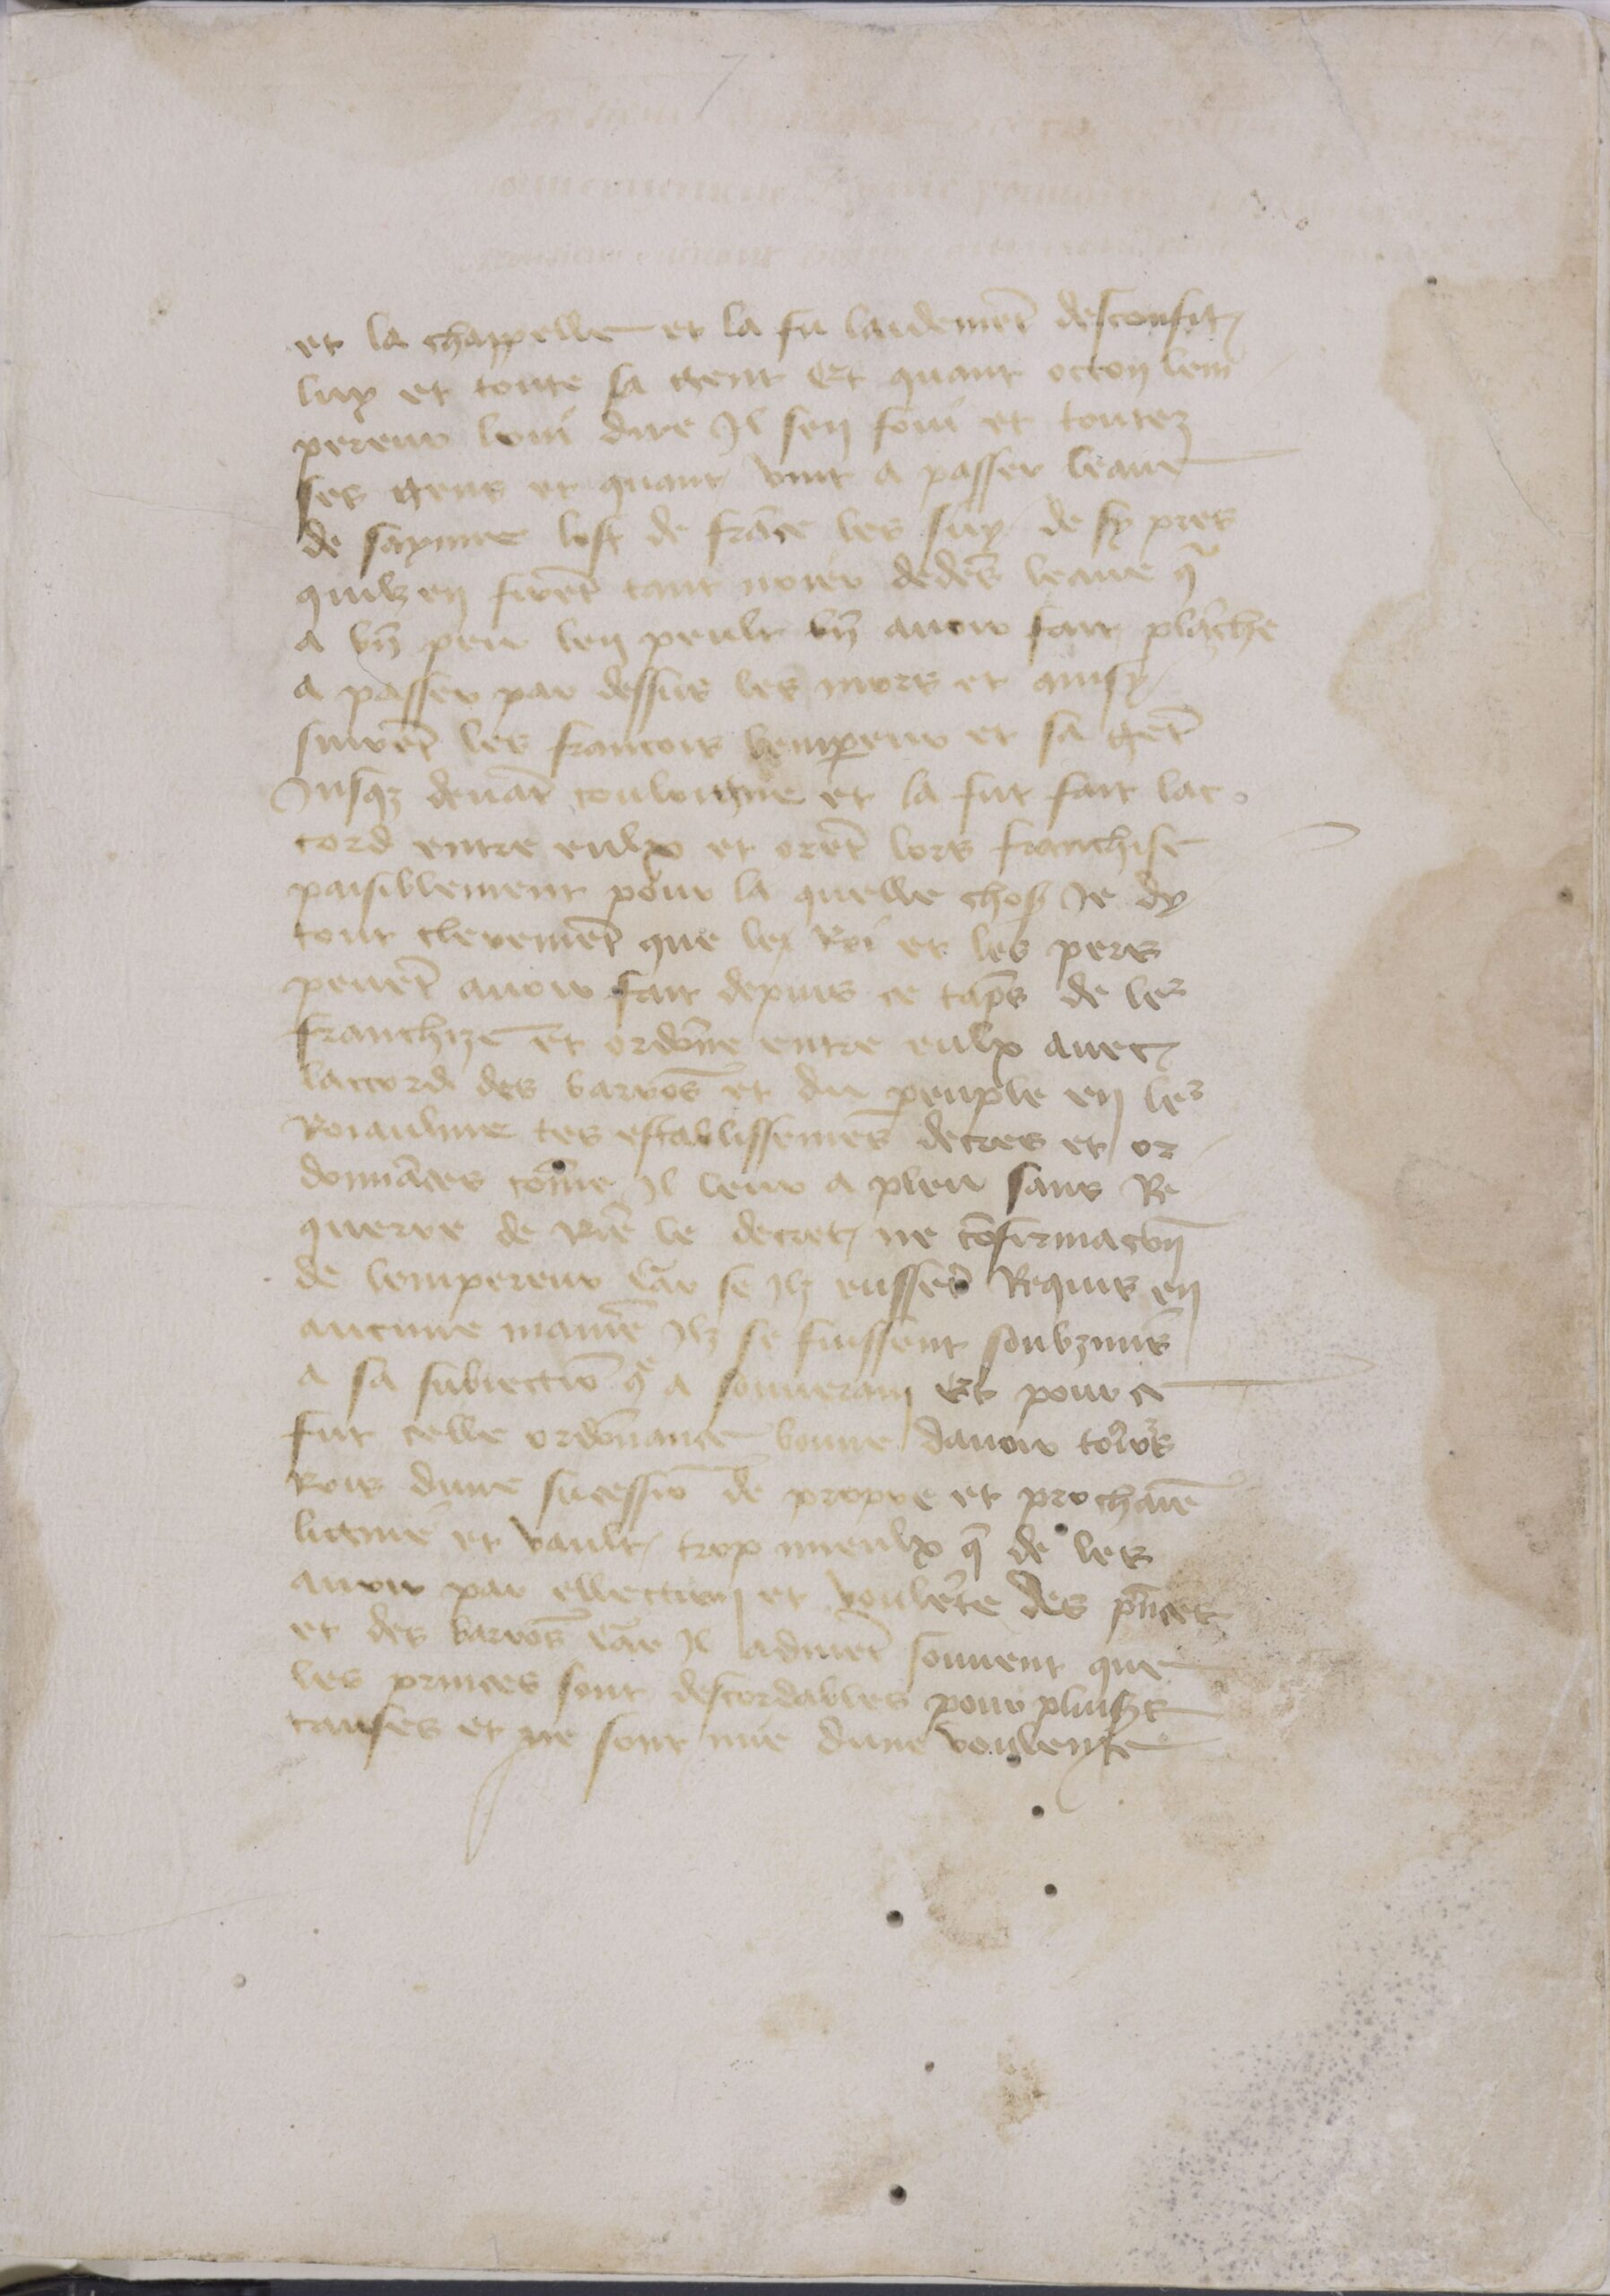 et la chappelle et la fu laidemẽt desconfit
luy et toute sa gent Et quant octon lem
pereur louÿ dire Il sen fouÿ et toutez
ses gens et quant vint a passer leaue
de saynne lost de frãce les suÿ de sy pres
quilz en firẽt tant noier dedẽs leaue q̃
a bñ peu len peult bñ auoir fait plãche
a passer par dessus les mors et ainsy
suirẽt les francois lempereur et sa gẽt
Jusqz deuãt coulongne et la fut fait lac
cord entre eulx et orẽt lors franchise
paisiblement pour la quelle chose Je dy
tout cleremẽt que le Roi et les pers
peuẽt auoir fait depuis ce tẽps de le²
franchize et ordõne entre eulx auec
laccord des barõs et du peuple en le²
Roiaulme tes establissemẽs decres et or
donnãces cõme Il leur a pleu sans Re
querre de Riẽ le decret ne cõfirmacõn
de lempereur Car se Ilz eussẽt Requis en
aucune maniẽ Ilz se fuissent soubzmis
a sa subiectiõ q̃ a souuerain Et pour ce
fut celle ordõnance bonne dauoir toũs
Rois dune sucessiõ de propre et prochaiẽ
lignie et vault trop mieulx q̃ de les
auoir par ellection et voulẽte des p̃nces
et des barõs Car Il aduiẽt souuent que
les princes sont descordables pour pluiss̃
causes et ne sont mie dune voulente